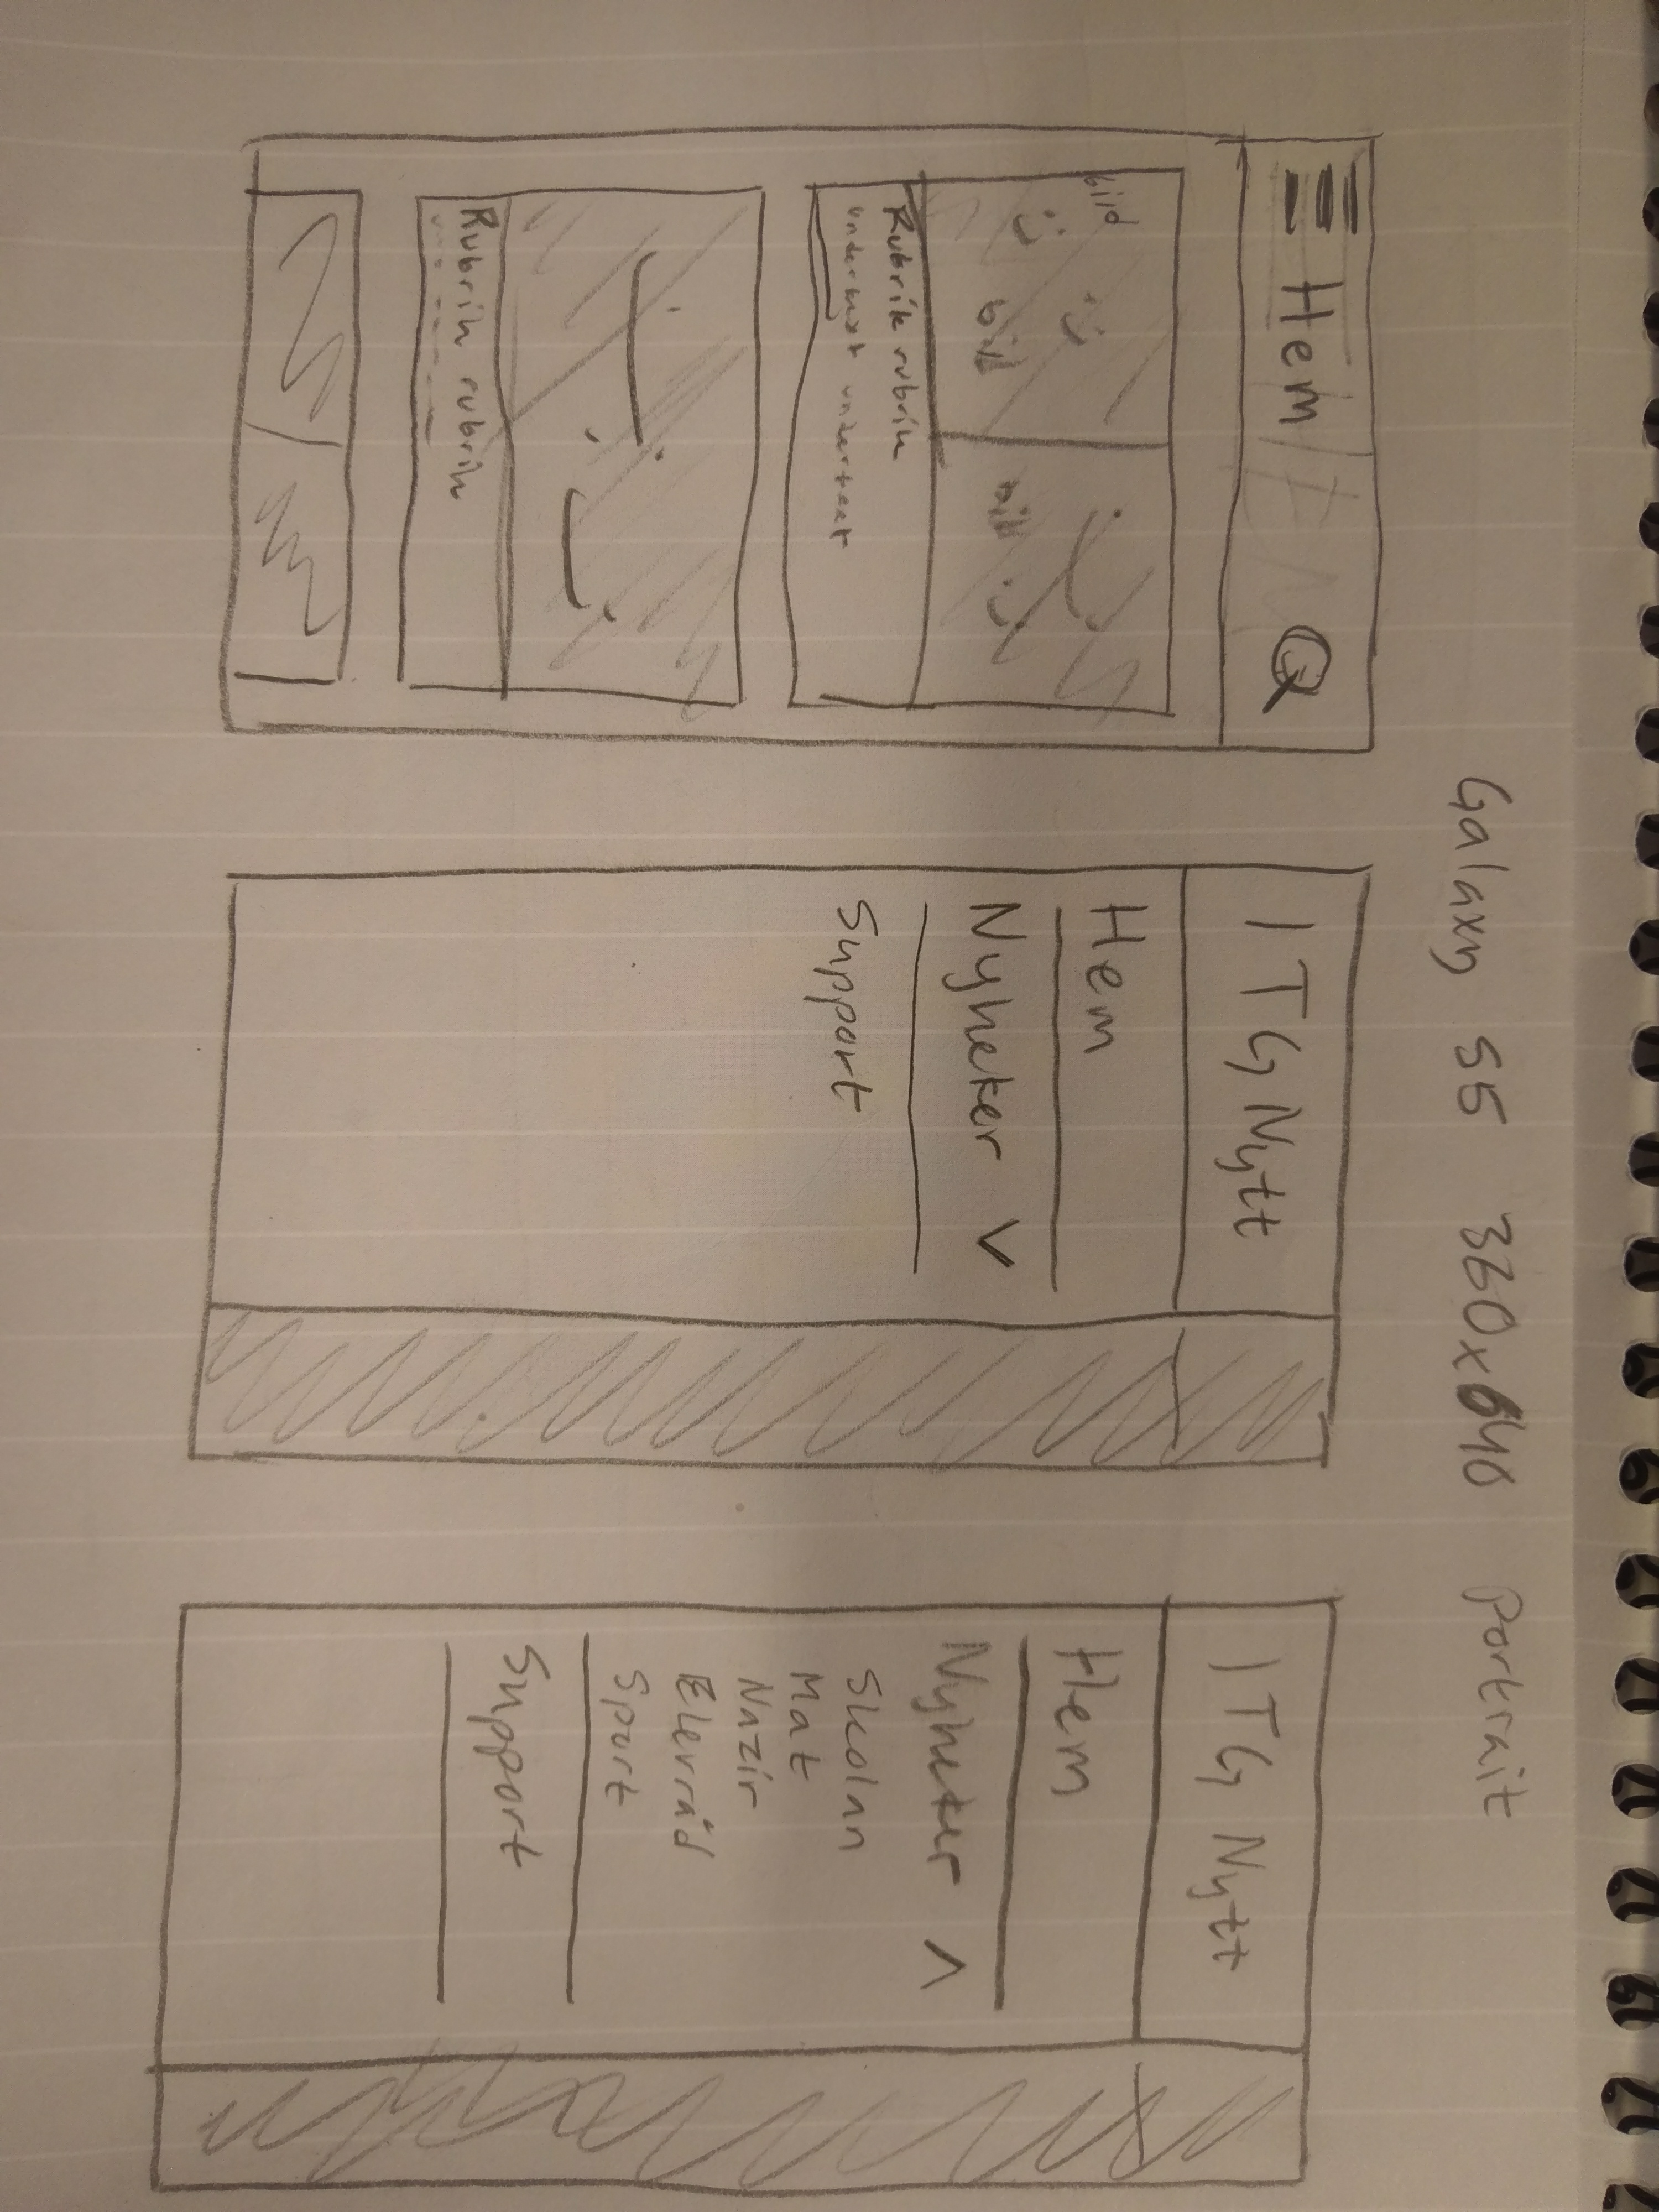 Galaxy S5 360x640 portrait
Hem
bild
bild
bild
Rubrik rubrik
undertext undertext
Rubrik rubrik
ITG Nytt
Hem
Nyheter V
Support
ITG Nytt
Hem
Nyheter Λ
Skolan
Mat
Nazir
Elevråd
Sport
Support